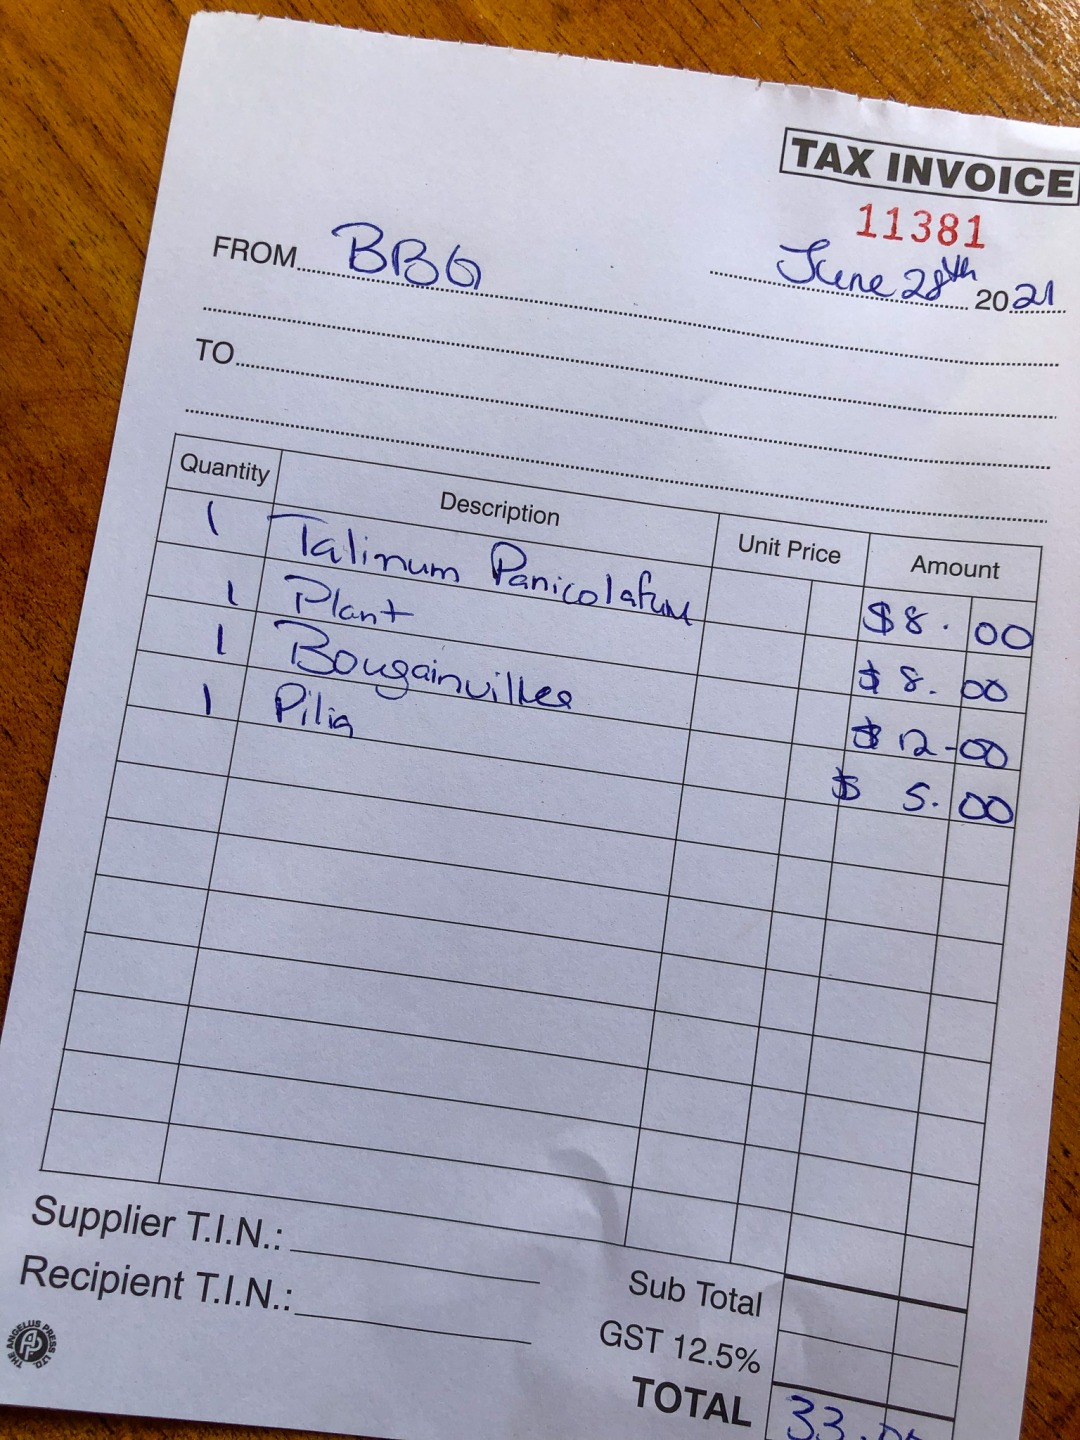 TAX INVOICE
11381
FROM BBG June 28th 2021
TO
Quantity Description Unit Price Amount
1 Talinum Panicolatum $8.00
1 Plant $8.00
1 Bougainvillea $12-00
1 Pilia $5.00
Supplier T.I.N.:
Recipient T.I.N.:
Sub Total
GST 12.5%
TOTAL 33.00
THE ANGELUS PRESS LTD.
AP